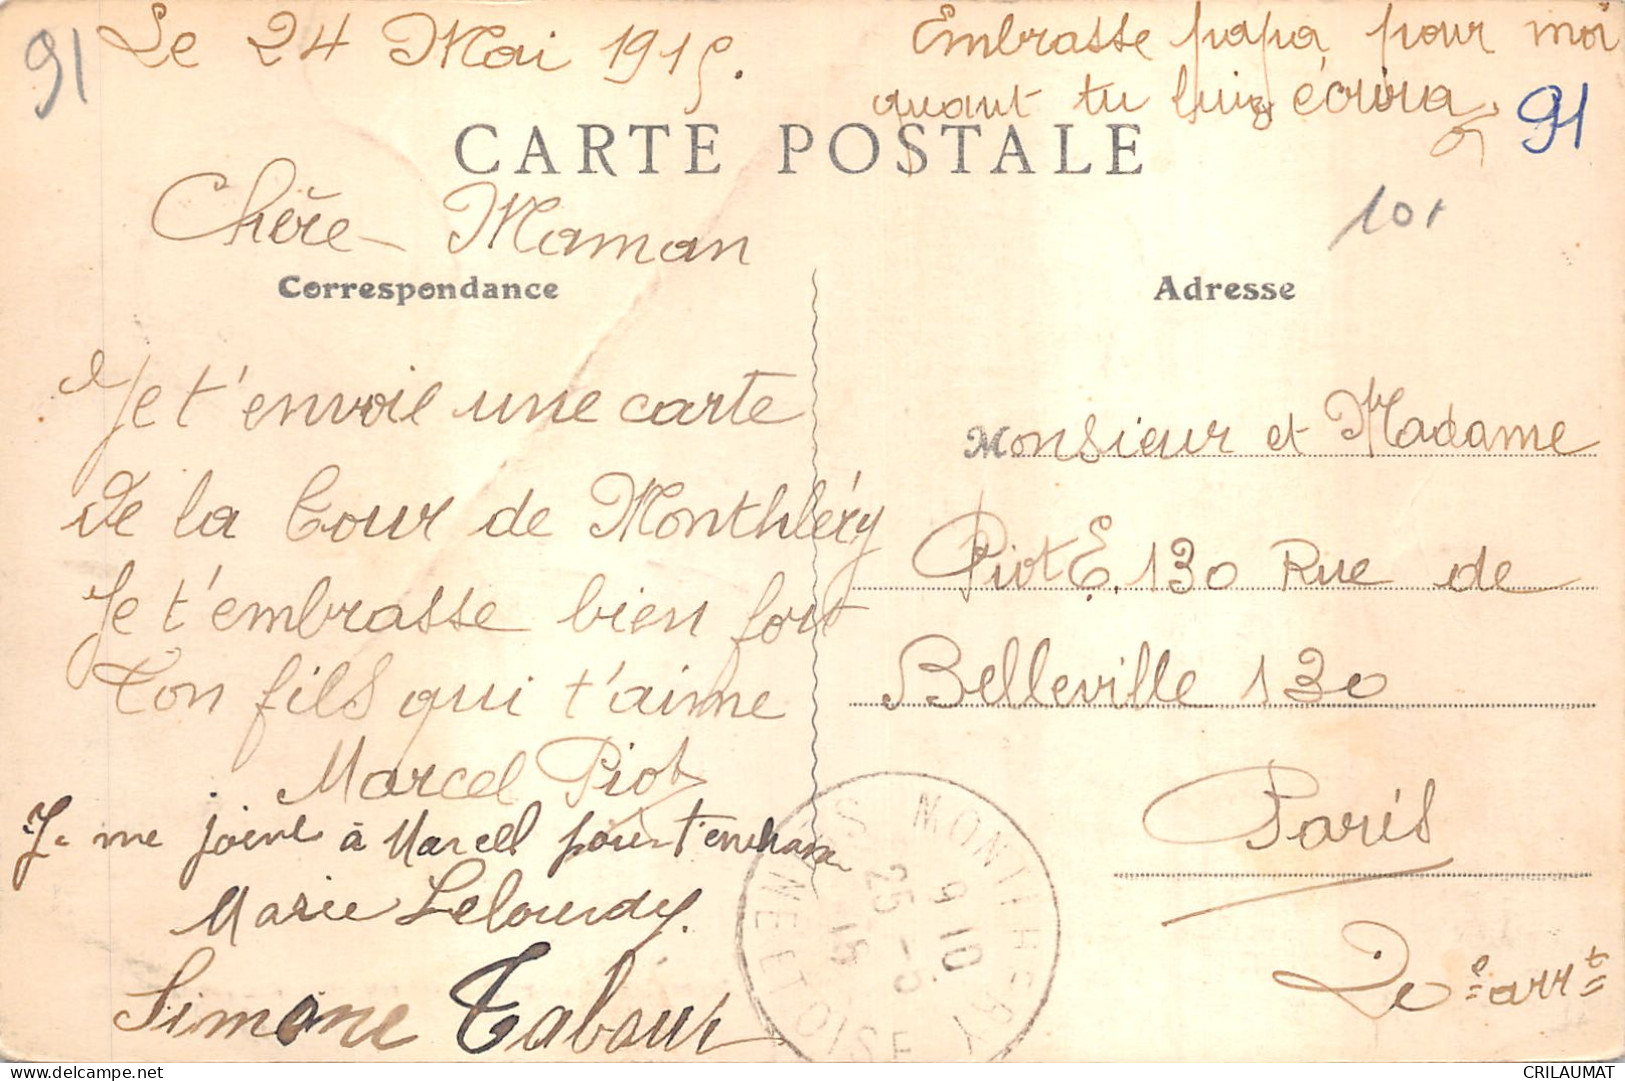 91
Le 24 Mai 1915.
Embrasse papa pour moi
quant tu lui écrira
91
CARTE POSTALE
101
Chère Maman
Correspondance
Je t'envoie une carte
De la Tour de Monthléry
Je t'embrasse bien fort
Ton fils qui t'aime
Marcel Piot
Je me joint à Marcel pour t'embrasser
Marie Lelourdy.
Simone Tabour
Adresse
Monsieur et Madame
Piot E. 130 Rue de
Belleville 130
Paris
MONTLHERY
9 10
25 -5
15
SEINE ET OISE
CRILAUMAT